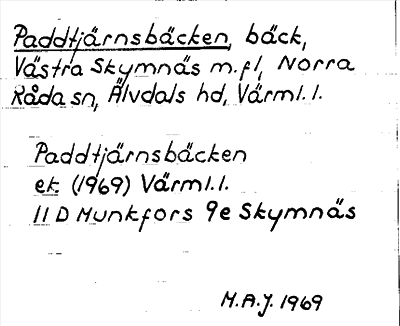 Paddtjärnsbäcken, bäck,
Västra Skymnäs m.fl, Norra
Råda sn, Älvdals hd, Värml.l.
Paddtjärnsbäcken
ek. (1969) Värml.l.
11 D Munkfors 9e Skymnäs
M.A.J. 1969